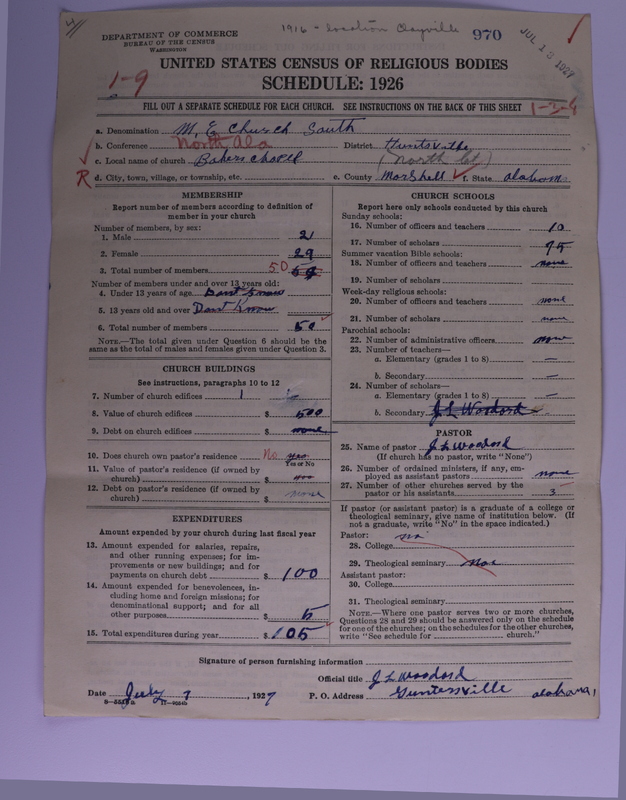 4
1916 - location Clayville
970
JUL 13 1927
DEPARTMENT OF COMMERCE
BUREAU OF THE CENSUS
WASHINGTON
UNITED STATES CENSUS OF RELIGIOUS BODIES
SCHEDULE: 1926
1-9
FILL OUT A SEPARATE SCHEDULE FOR EACH CHURCH. SEE INSTRUCTIONS ON THE BACK OF THIS SHEET
1-3-4
a. Denomination M. E. Church South
b. Conference North Ala District Huntsville
c. Local name of church Bakers chapel (North
R d. City, town, village, or township, etc. e. County Marshell f. State alabama
MEMBERSHIP
Report number of members according to definition of
member in your church
Number of members, by sex:
1. Male 21
2. Female 29
3. Total number of members 50
Number of members under and over 13 years old:
4. Under 13 years of age Dont Know
5. 13 years old and over Dont Know
6. Total number of members 50
NOTE.—The total given under Question 6 should be the
same as the total of males and females given under Question 3.
CHURCH BUILDINGS
See instructions, paragraphs 10 to 12
7. Number of church edifices 1
8. Value of church edifices $ 500
9. Debt on church edifices $ none
10. Does church own pastor's residence No yes
Yes or No
11. Value of pastor's residence (if owned by
church) $
12. Debt on pastor's residence (if owned by
church) $ none
EXPENDITURES
Amount expended by your church during last fiscal year
13. Amount expended for salaries, repairs,
and other running expenses; for im-
provements or new buildings; and for
payments on church debt $ 100
14. Amount expended for benevolences, in-
cluding home and foreign missions; for
denominational support; and for all
other purposes $ 5
15. Total expenditures during year $ 105
CHURCH SCHOOLS
Report here only schools conducted by this church
Sunday schools:
16. Number of officers and teachers 10
17. Number of scholars 75
Summer vacation Bible schools:
18. Number of officers and teachers none
19. Number of scholars
Week-day religious schools:
20. Number of officers and teachers none
21. Number of scholars none
Parochial schools:
22. Number of administrative officers none
23. Number of teachers—
a. Elementary (grades 1 to 8) —
b. Secondary —
24. Number of scholars—
a. Elementary (grades 1 to 8) —
b. Secondary J L Woodord
PASTOR
25. Name of pastor J L Woodord
(If church has no pastor, write "None")
26. Number of ordained ministers, if any, em-
ployed as assistant pastors none
27. Number of other churches served by the
pastor or his assistants 3
If pastor (or assistant pastor) is a graduate of a college or
theological seminary, give name of institution below. (If
not a graduate, write "No" in the space indicated.)
Pastor: no
28. College
29. Theological seminary
Assistant pastor:
30. College
31. Theological seminary
NOTE.—Where one pastor serves two or more churches,
Questions 28 and 29 should be answered only on the schedule
for one of the churches; on the schedules for the other churches,
write "See schedule for church."
Signature of person furnishing information
Official title J L Woodord
Date July 7, 1927 P. O. Address Guntersville alabama